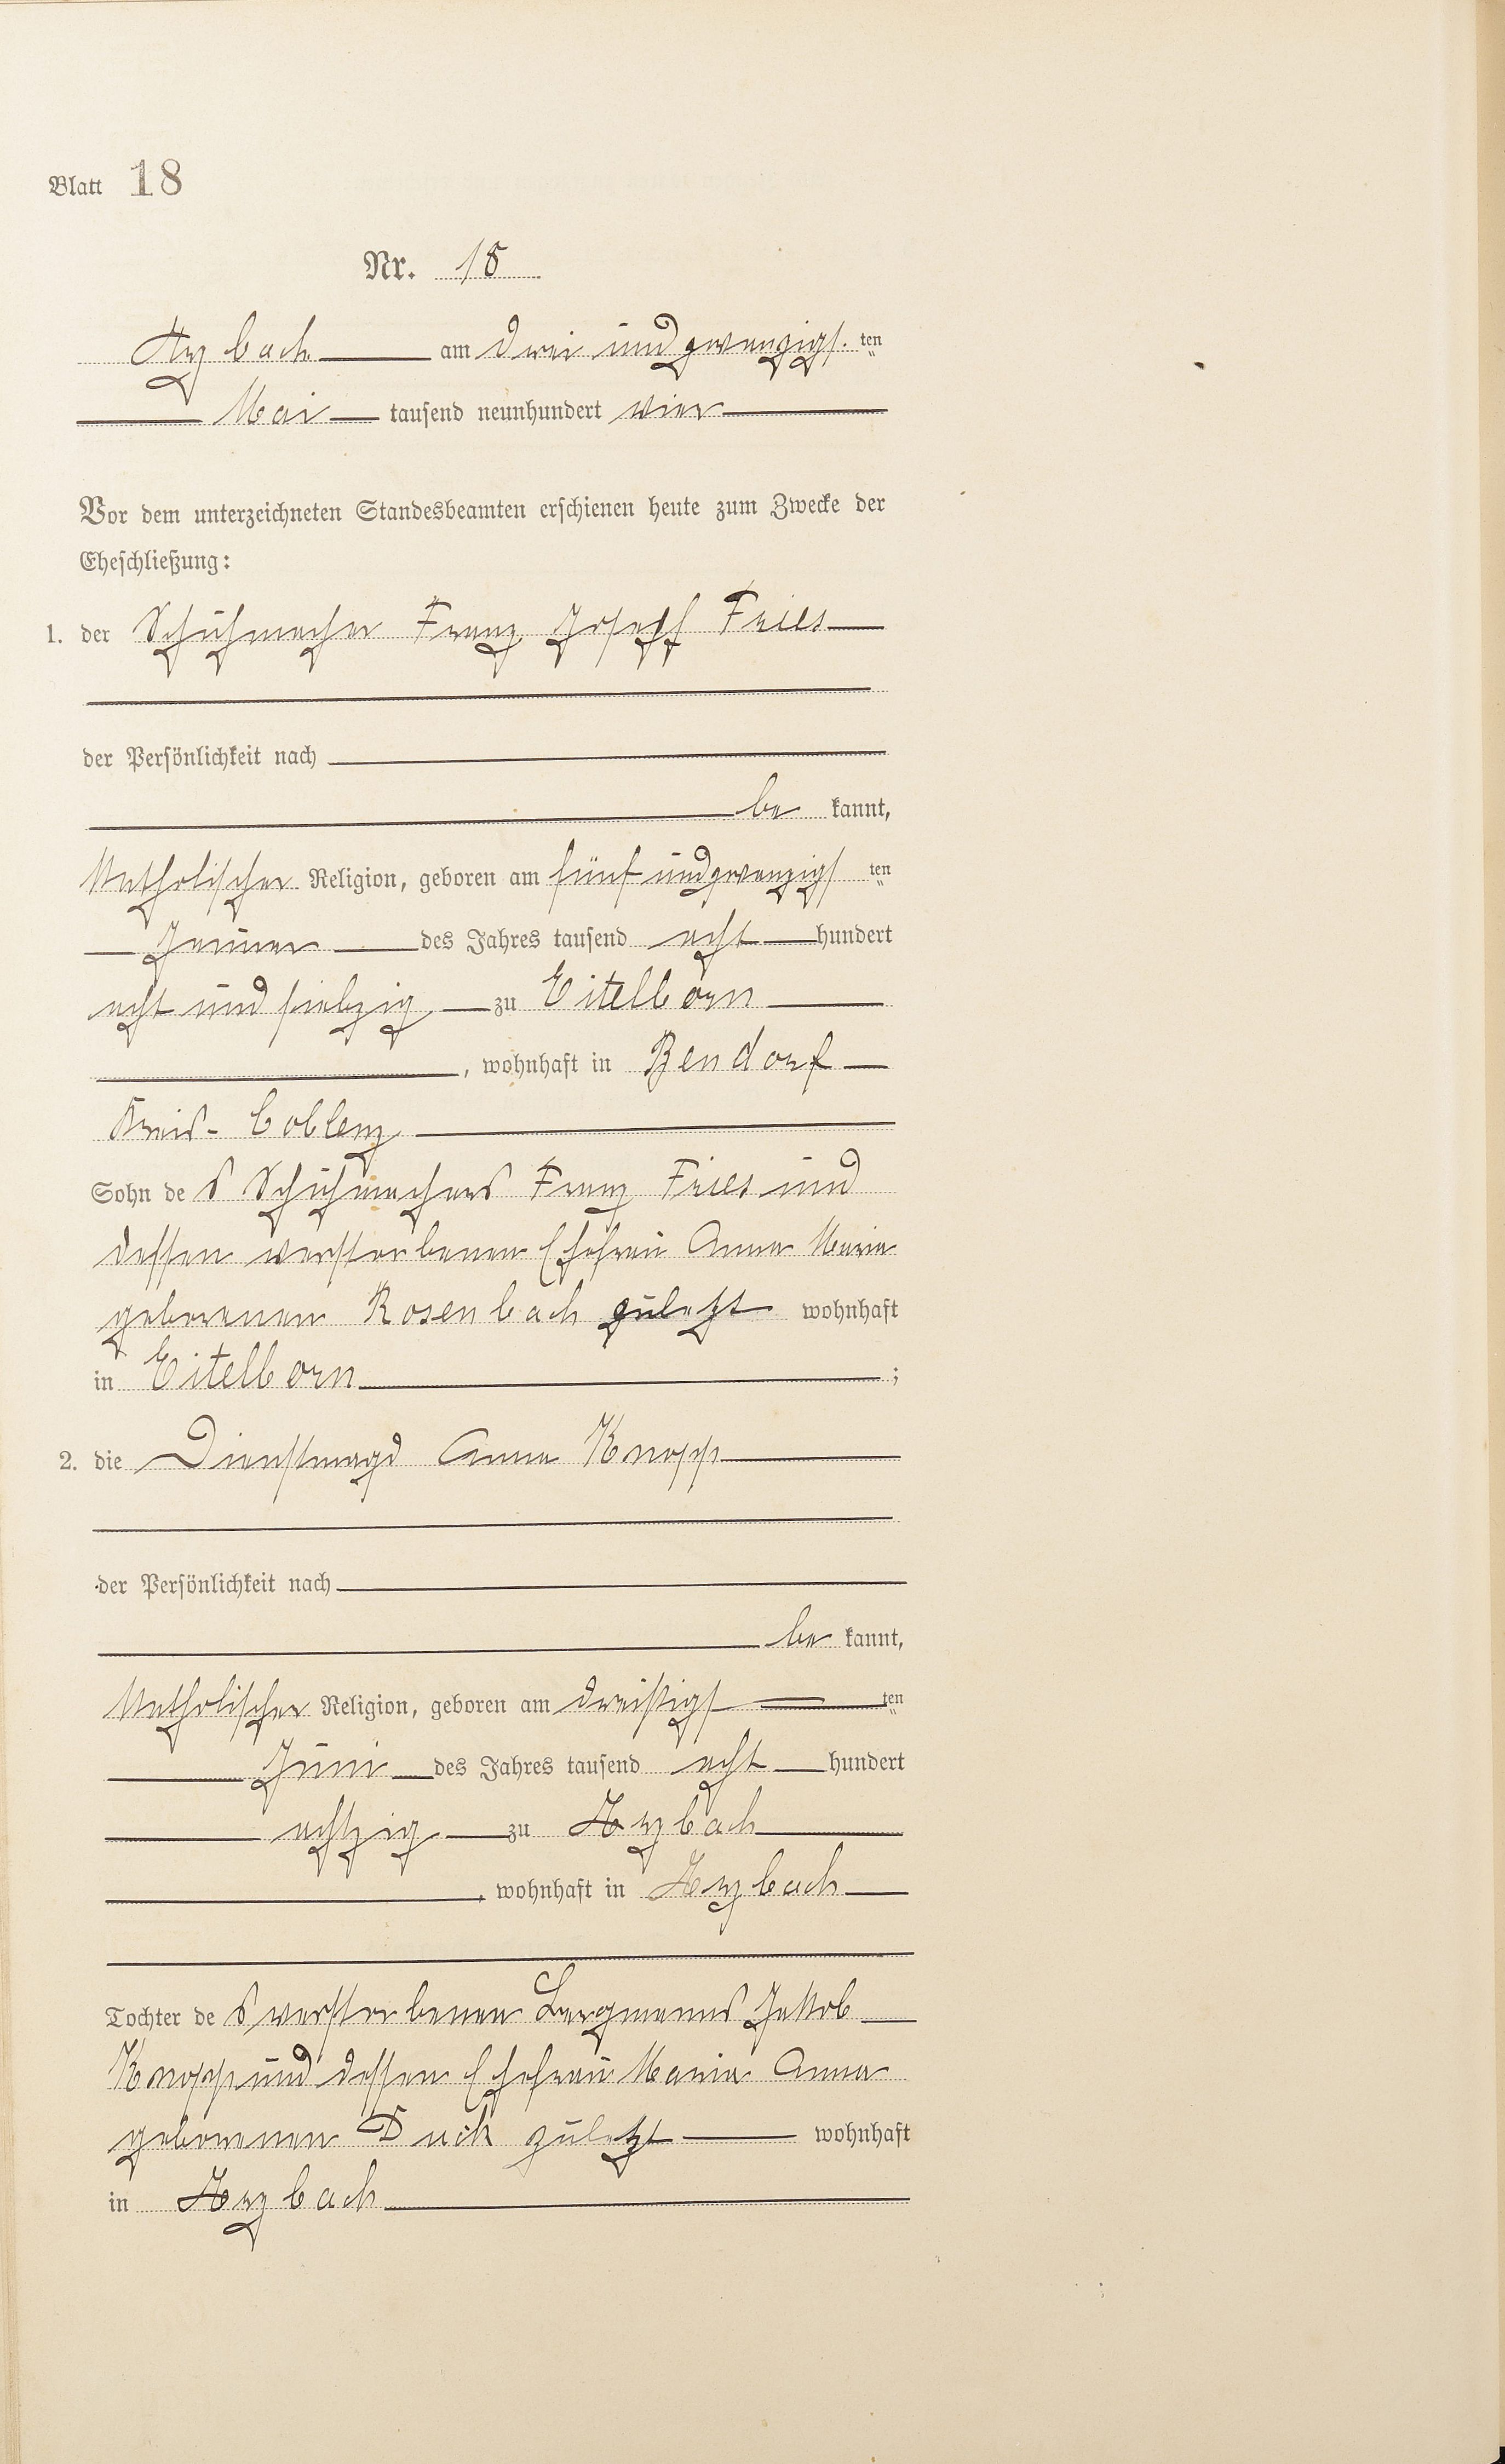 Blatt 18
Nr. 18
Arzbach am drei und zwanzigs. ten
Mai tausend neunhundert vier
Vor dem unterzeichneten Standesbeamten erschienen heute zum Zwecke der
Eheschließung:
1. der Schuhmacher Franz Joseff Fries
der Persönlichkeit nach
be kannt,
Katholischer Religion, geboren am fünf und zwanzigs ten
Januar des Jahres tausend acht hundert
acht und siebzig zu Eitelborn
, wohnhaft in Bendorf
Kreis- Coblenz
Sohn de s Schuhmachers Franz Fries und
dessen verstorbenen Ehefrau Anna Maria
geborenen Rosenbach zuletzt wohnhaft
in Eitelborn ;
2. die Dienstmagd Anna Knopp
der Persönlichkeit nach
be kannt,
Katholischer Religion, geboren am dreißigs ten
Juni des Jahres tausend acht hundert
achtzig zu Arzbach
, wohnhaft in Arzbach
Tochter de s verstorbenen Bergmanns Jakob
Knopp und dessen Ehefrau Maria Anna
geborenen Duck zuletzt wohnhaft
in Arzbach